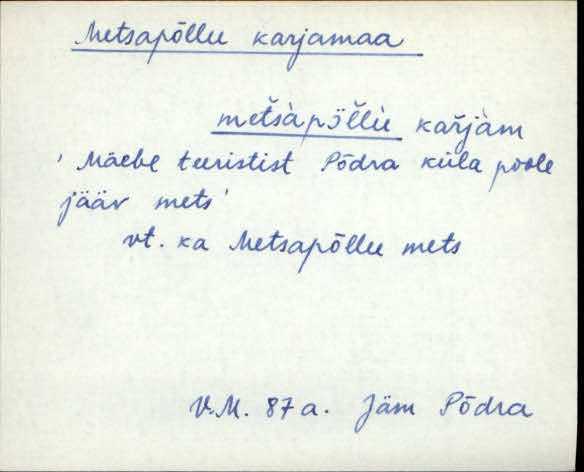 Metsapõllu karjamaa
metsàpɔ̈llù karjàm
' Mäebe teeristist Põdra küla poole
jääv mets '
vt. ka Metsapõllu mets
V.M. 87 a. Jäm Põdra